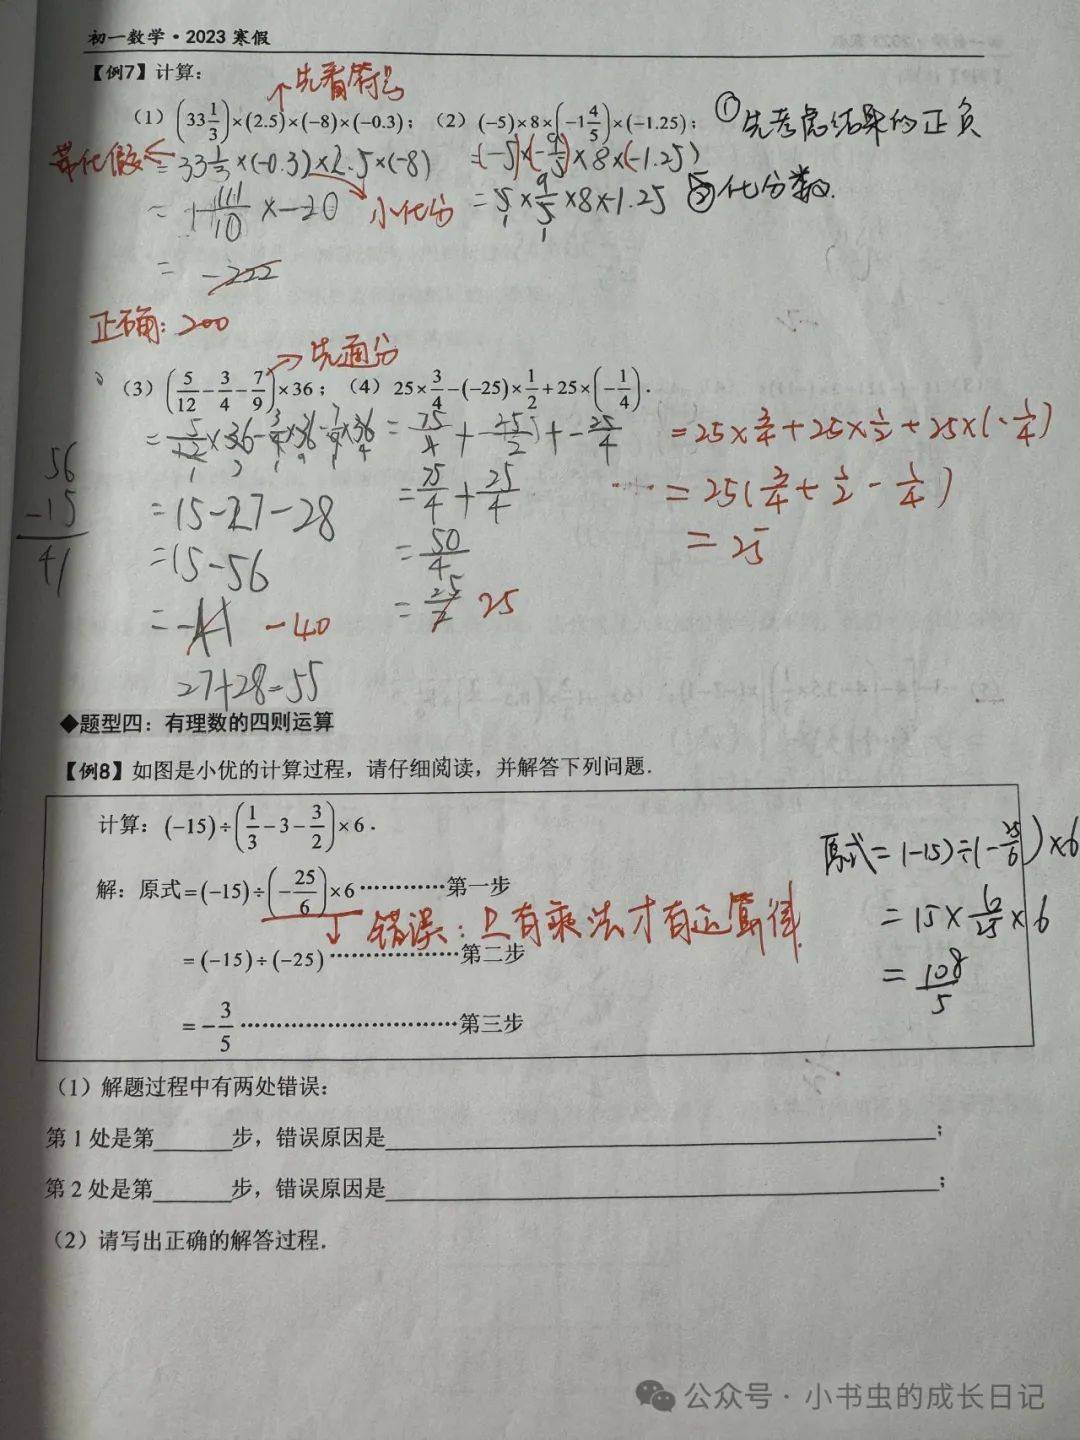 初一数学·2023寒假
【例7】计算：
先看符号
(1) (33 1/3)×(2.5)×(-8)×(-0.3)；(2) (-5)×8×(-1 4/5)×(-1.25)；
①先考虑结果的正负
带化假
=33 1/3×(-0.3)×2.5×(-8)
=(-5)×(-9/5)×8×(-1.25)
②化分数.
小化分
=5×9/5×8×-1.25
= -222
正确：200
先通分
(3) (5/12-3/4-7/9)×36；(4) 25×3/4-(-25)×1/2+25×(-1/4).
=5/12×36-3/4×36-7/9×36
=75/4+-25/2+-25/4
=25×3/4+25×1/2+25×(-1/4)
56
-15
41
=15-27-28
=75/4+25/4
=25(3/4+1/2-1/4)
=15-56
=50/4
=25
=-41 -40
=25/2 25
27+28=55
◆题型四：有理数的四则运算
【例8】如图是小优的计算过程，请仔细阅读，并解答下列问题.
计算：(-15)÷(1/3-3-3/2)×6.
解：原式=(-15)÷(-25/6)×6…………第一步
错误：只有乘法才有运算律
=(-15)÷(-25)…………………第二步
=-3/5…………………………第三步
原式=(-15)÷(-25/6)×6
=15×6/25×6
=108/5
(1) 解题过程中有两处错误：
第1处是第______步，错误原因是______；
第2处是第______步，错误原因是______；
(2) 请写出正确的解答过程.
公众号·小书虫的成长日记